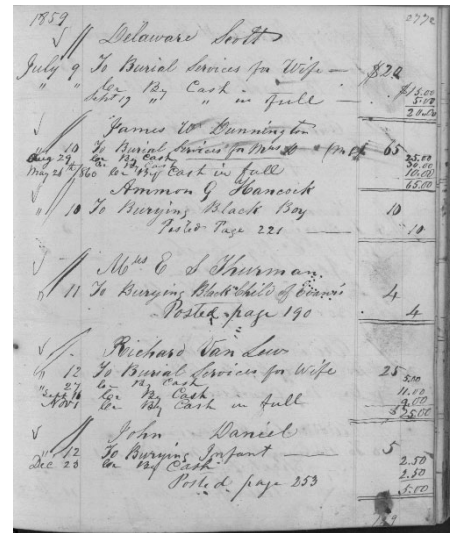 1859 277
Delaware Scott
July 9 To Burial Services for Wife — $20
" " Cr By Cash — $15.00
Sept 19 " " " in full — 5.00
20.00
James W Dunnington
" 10 To Burial Services for Mrs D 65
Aug 29 Cr By Cash 25.00
" " Cr By Cash 30.00
May 26th 1860 Cr By Cash in full 10.00
65.00
Ammon G Hancock
" 10 To Burying Black Boy 10
Posted Page 221 — 10
Mrs E S Thurman
" 11 To Burying Black Child of 4
Posted page 190 4
Richard Van Lew
" 12 To Burial Services for Wife 25
" 27 Cr By Cash 5.00
Sept 16 Cr By Cash 11.00
Nov 1 Cr By Cash in full 9.00
$25.00
John Daniel
" 12 To Burying Infant — 5
Dec 23 Cr By Cash 2.50
2.50
Posted page 253 5.00